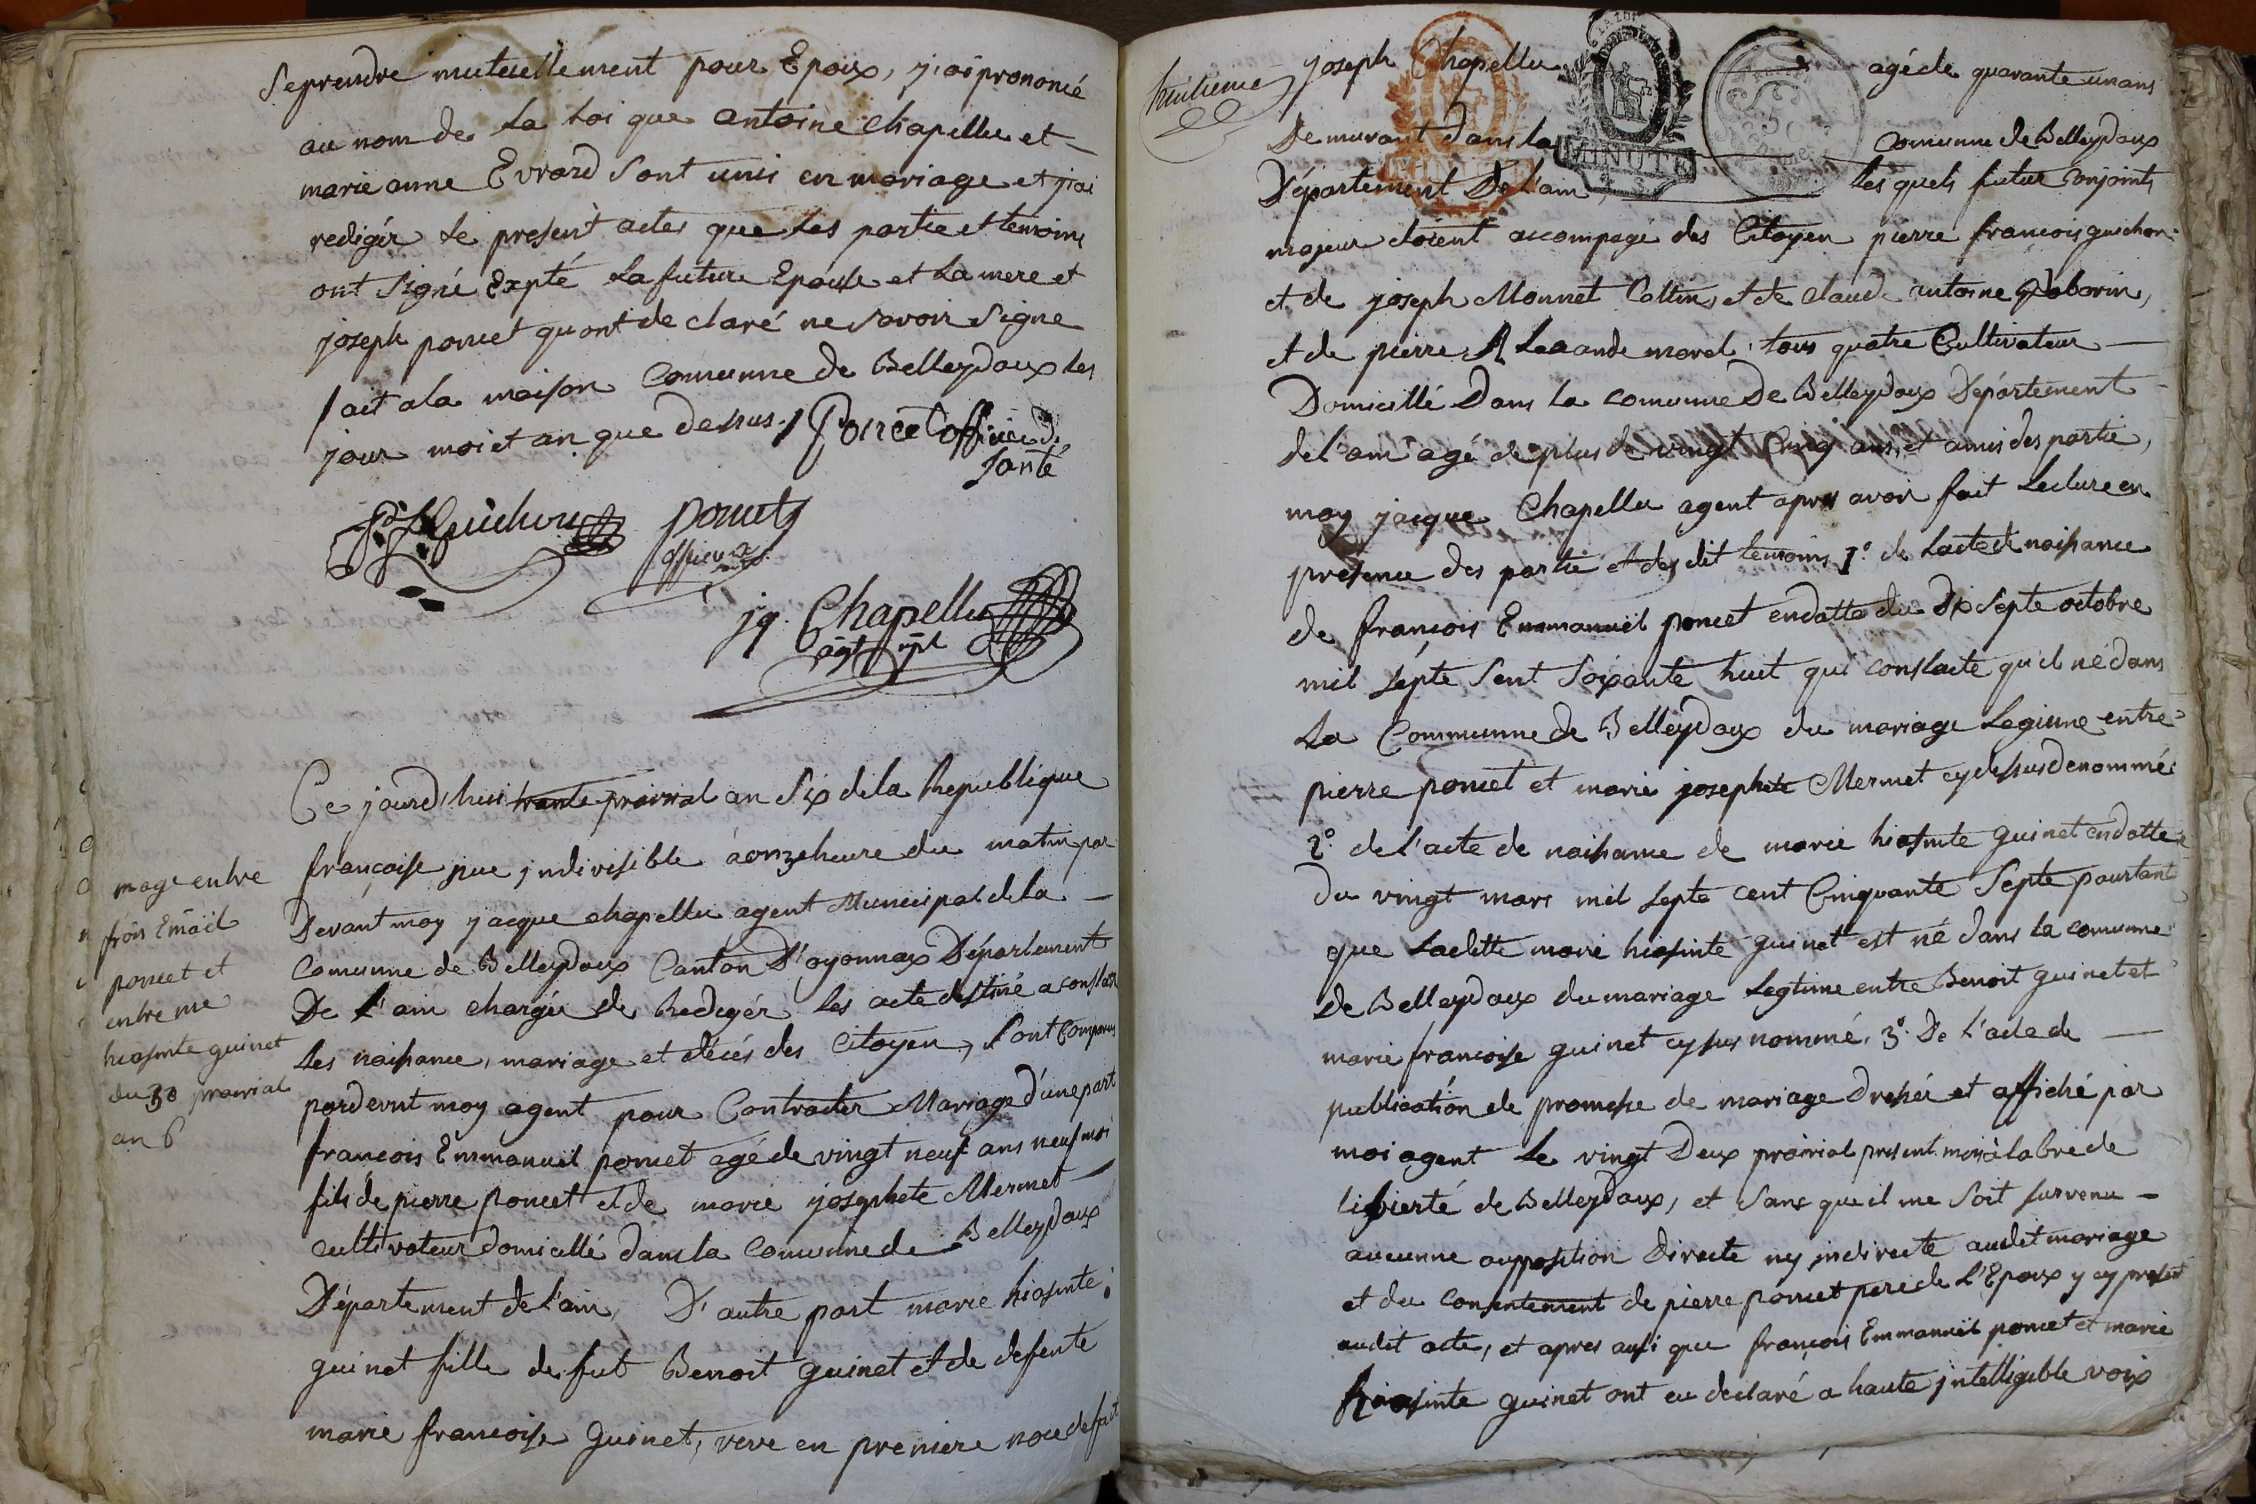 Se prendre mutuellement pour Epoux, j'ai prononcé
au nom de La Loi que antoine Chapellu et
marie anne Evrard Sont unis en mariage et j'ai
redigér le present actes que les partie et temoins
ont Signé Expté La future Epouse et La mere et
joseph poncet qu ont de claré ne savoir Signe
fait a la maison Comunne de Belleydoux les
jour moi et an que dessus / Poncet officier de
santé
Pr. f. Guichon Poncet
officier
jq. Chapellu
agt mpl
Ce jourd'hui trante prairial an Six de la Republique
françaisse jue jndivisible à onze heure du matin par
Devant moy jacque chapellu agent Municipal de la
Comunne de Belleydoux Canton D'oyonnax Département
De L'ain chargée de Redegér les acte destiné a constate
Les naissance, mariage et décés des Citoyen, Sont Comparus
pardevent moy agent pour Contracter Mariage d'une part
francois Emmanuel poncet agé de vingt neuf ans neuf moi
fils de pierre poncet et de marie josephete Mermet
cultivateur domicillé dans la Comunne de Belleydoux
Département de L'ain, D'autre part marie hiasinte
guinet fille de fut Benoit guinet et de defente
marie francoise guinet, veve en premiere noce de fut
mage entre
frois Emäel
poncet et
entre me
hiasinte guinet
du 30 prairial
an 6
huitieme
joseph Chapellu agé de quarante un ans
Demurant dans la comunne de Belleydoux
Département De L'ain, les quels futur conjoints
MINUTE
majeur étoient accompagé des Citoyen pierre françois guichon
et de joseph Monnet Collin, et de claude antoine Goborin,
et de pierre A Lexande morel, tous quatre Cultivateur
Domicillé Dans la comunne De Belleydoux Département
de L'ain agé de plus de vingt Cinq ans, et amis des partie,
moy jacque Chapellu agent apres avoir fait Lecture en
presence des partie et des dit temoins 1º. de Lacte de naissance
de françois Emmanuël poncet en datte du Dix Septe octobre
mil septe Sent Soixante huit qui constacte qu'il né dans
La Communne de Belleydoux du mariage Legieme entre
pierre poncet et marie josephete Mermet cy dessus denommé
2º. de L'acte de naissance de marie hiasinte guinet en datte
du vingt mars mil septe cent Cinquante Septe pourtant
que Ladette marie hiasinte guinet est né dans la comunne
de Belleydoux du mariage Legtime entre Benoit guinet et
marie francoise guinet cy sus nommé, 3º. De L'acte de
publication de promesse de mariage dressée et affiché par
moi agent Le vingt Deux prairial present mois à labre de
libierté de Belleydoux, et Sans que il me Soit survenu
aucunne oupposition Directe ny indirecte audit mariage
et du consentement de pierre poncet pere de L'Epoux y cy present
audit acte, et apres aussi que françois Emmanuël poncet et marie
hiasinte guinet ont eu declaré a haute jntelligible voix